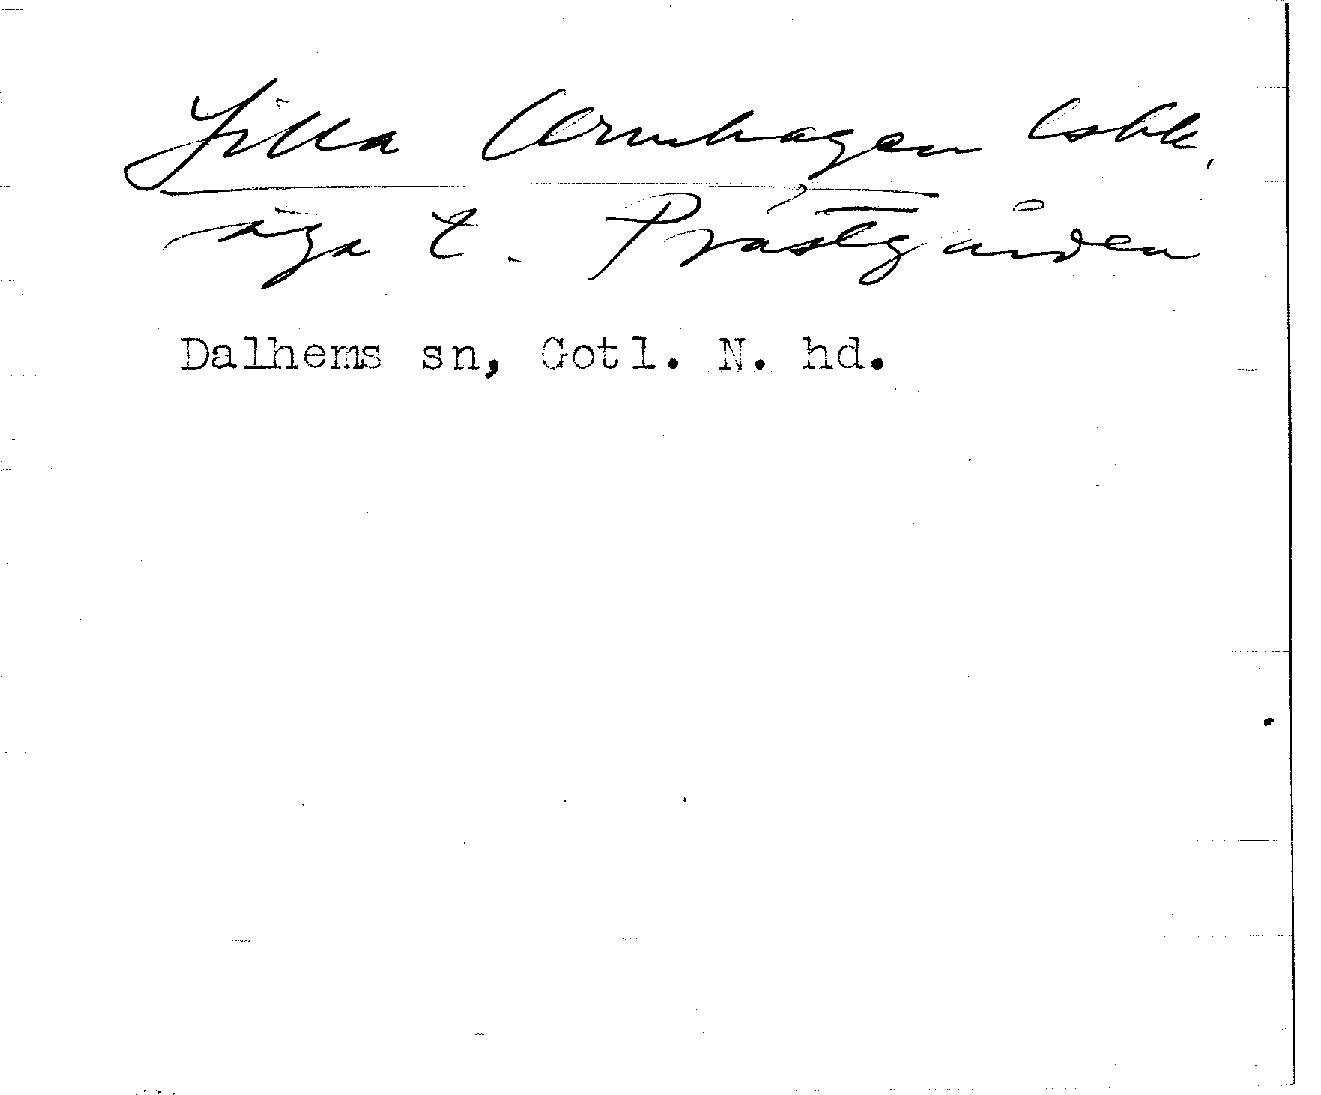 Lilla Ernhagen
äga t. Prästgården
Dalhems sn, Gotl. N. hd.